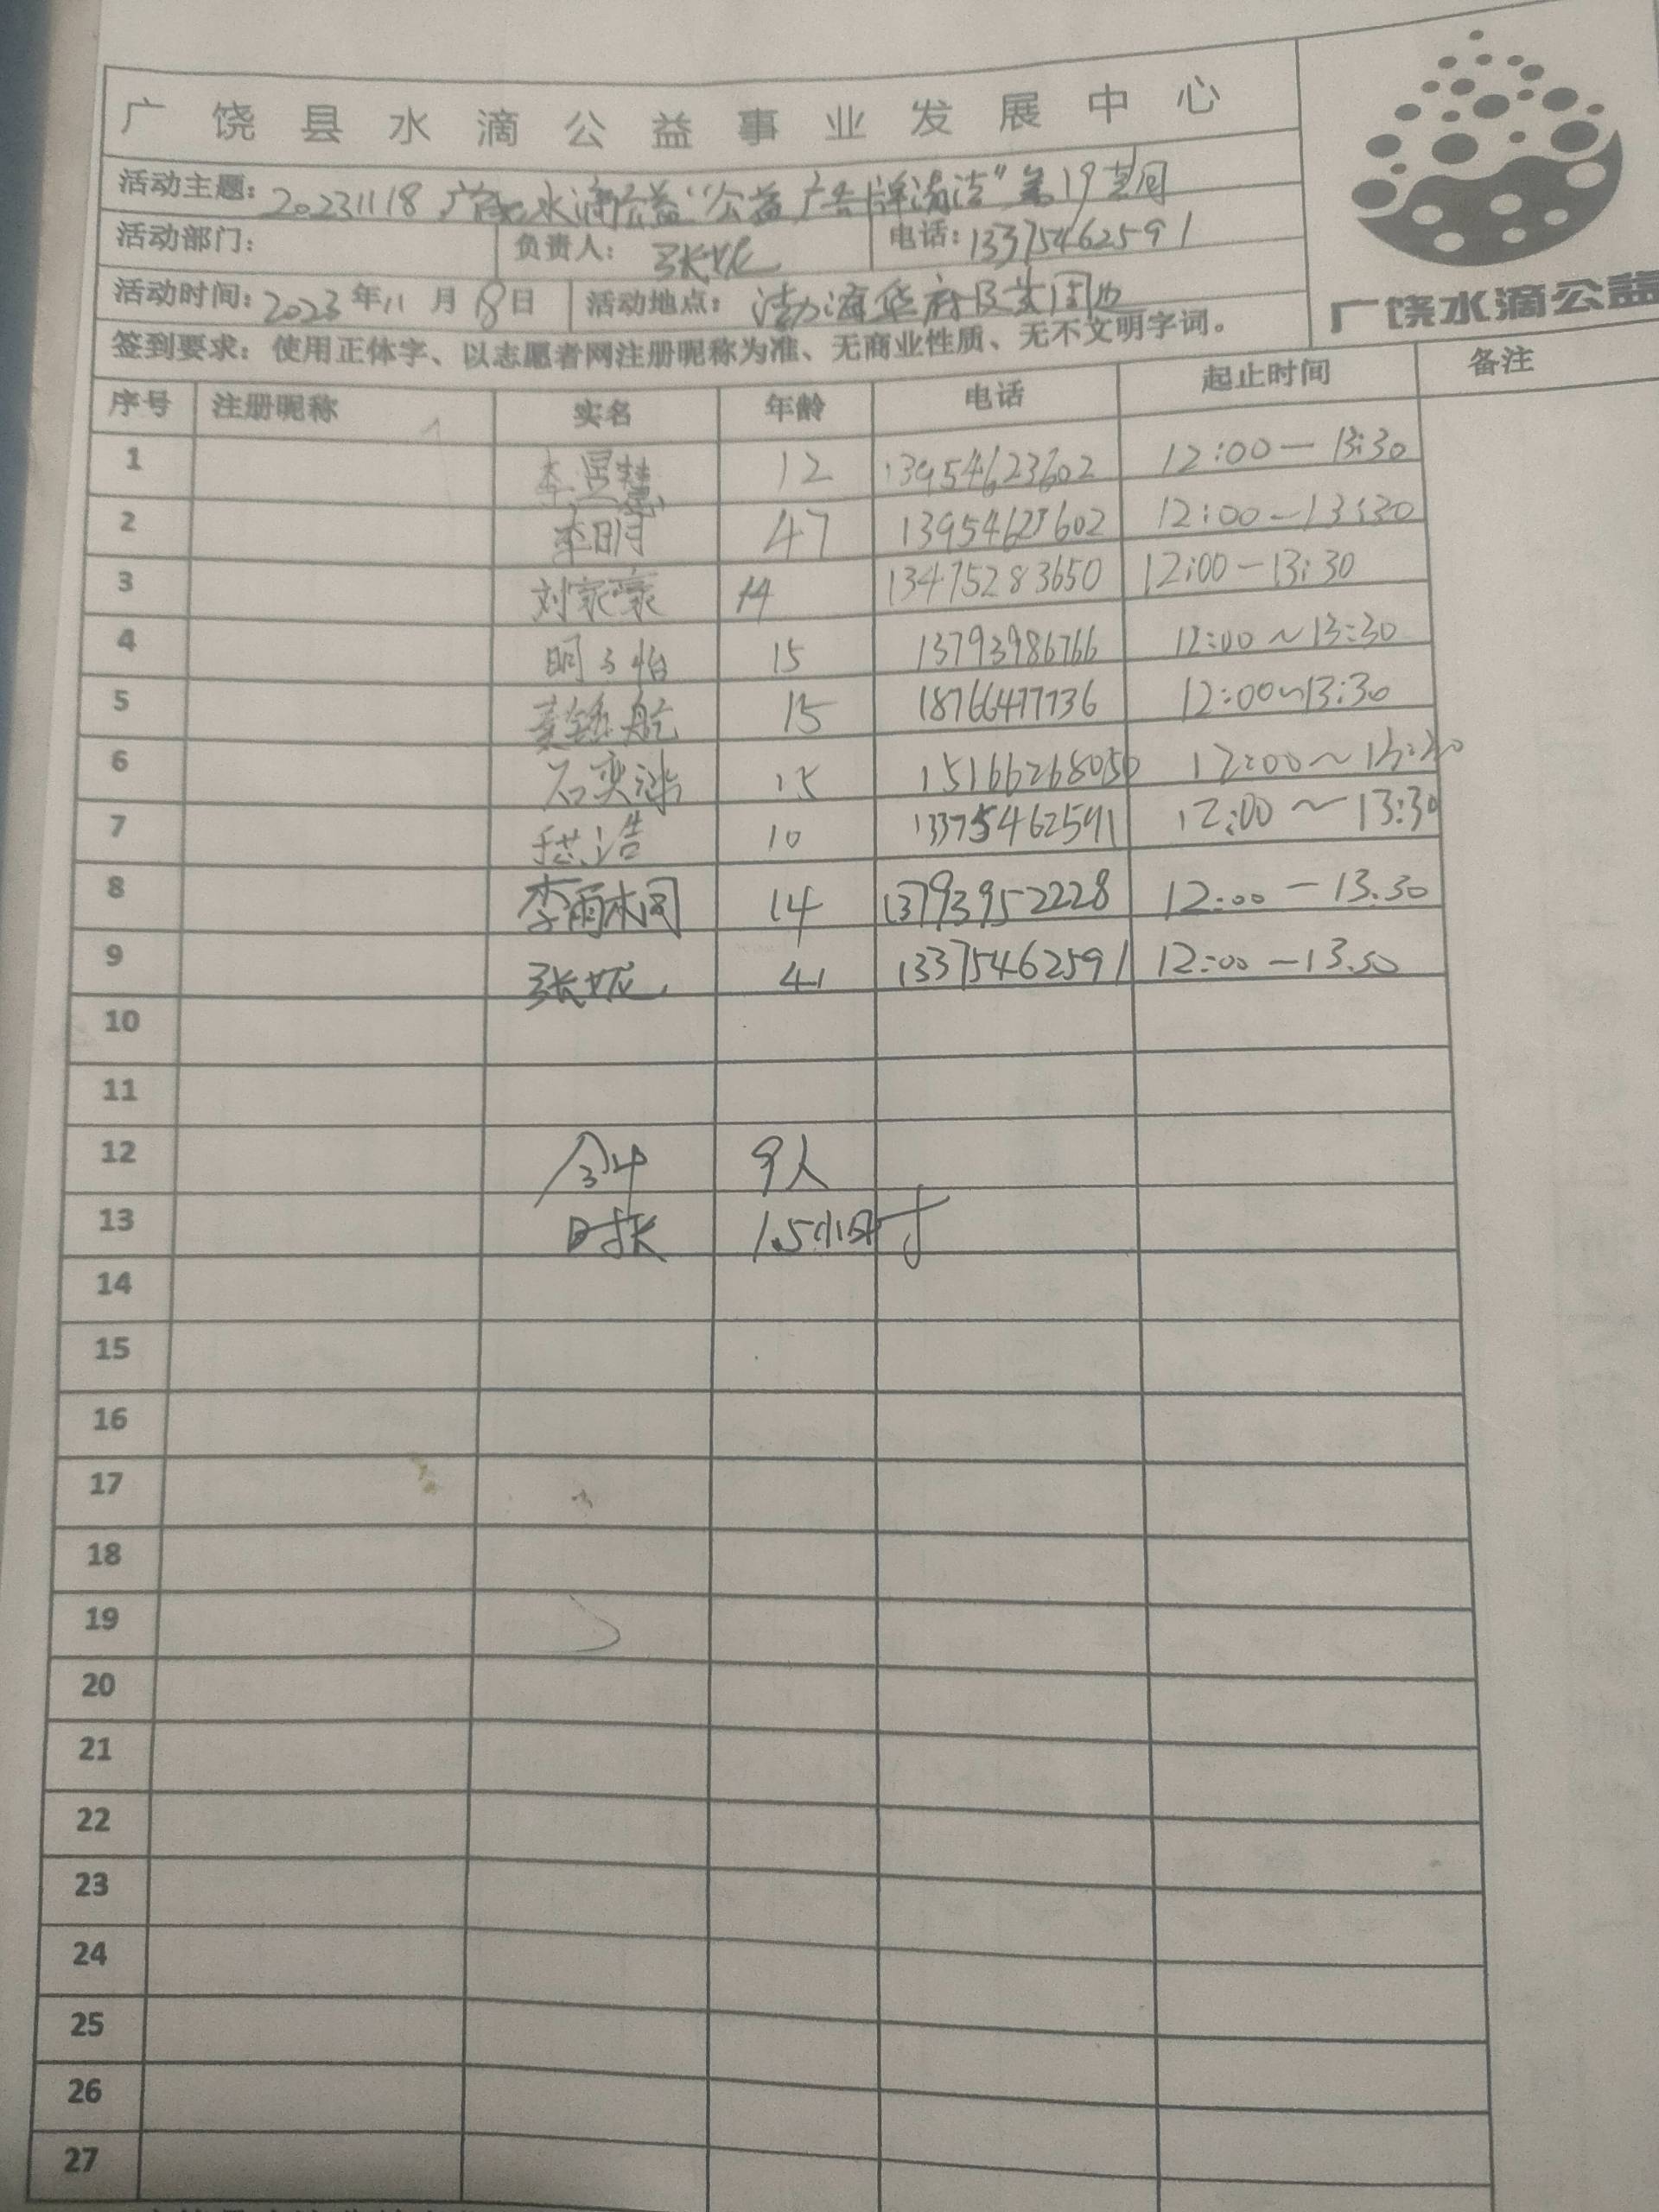 广饶县水滴公益事业发展中心
活动主题：20231118广饶水滴公益“公益广告牌清洁”第19期
活动部门： 负责人：张 电话：13375462591
活动时间：2023年11月18日 活动地点：渤海华府及其周边
广饶水滴公益
签到要求：使用正体字、以志愿者网注册昵称为准、无商业性质、无不文明字词。
序号 注册昵称 实名 年龄 电话 起止时间 备注
1 李昱慧 12 13954623602 12:00—13:30
2 李明 47 13954623602 12:00—13:30
3 刘家豪 14 13475283650 12:00—13:30
4 明子怡 15 13793986766 12:00～13:30
5 航 15 18766477736 12:00～13:30
6 石奕 15 15166268050 12:00～13:30
7 浩 10 13375462591 12:00～13:30
8 李雨桐 14 13793952228 12:00—13.30
9 张 41 13375462591 12:00—13.30
10
11
12 合计 9人
13 时长 1.5小时
14
15
16
17
18
19
20
21
22
23
24
25
26
27